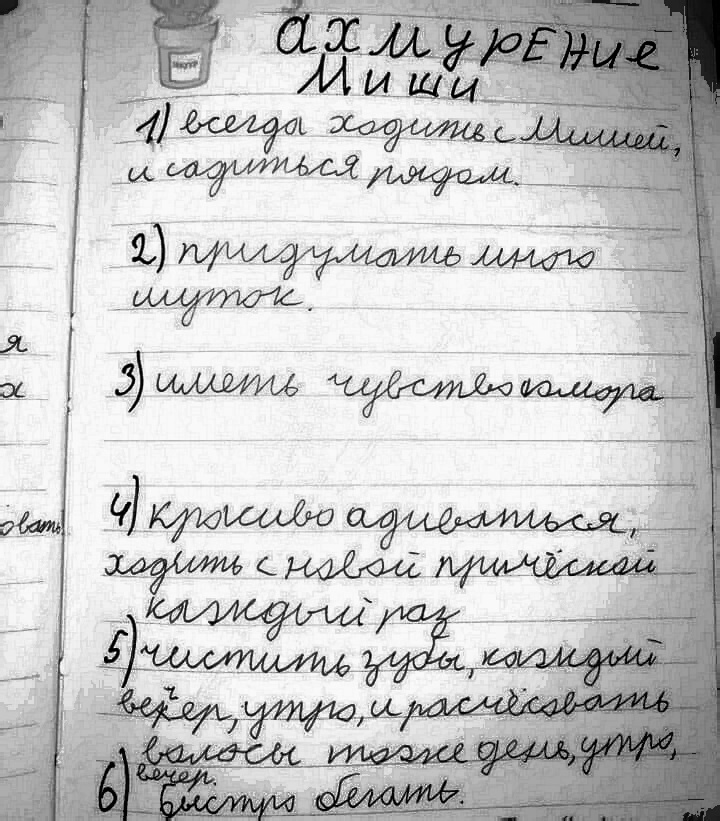 ахмурЕНиЕ
Миши
1) всегда ходить с Мишей,
и садиться рядом.
2) придумать много
шуток.
3) иметь чувство юмора
4) красиво адиваться,
ходить с новой причёской
каждый раз
5) чистить зубы, каждый
вечер, утро, и расчёсовать
волосы тоже день, утро,
вечер.
6) быстро бегать.
я
х
овать